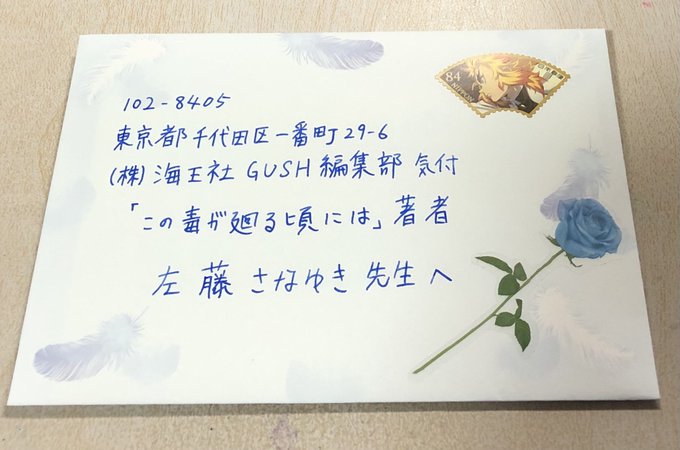 102-8405
東京都千代田区一番町29-6
(株)海王社 GUSH編集部 気付
「この毒が廻る頃には」著者
左藤さなゆき先生へ
84
NIPPON